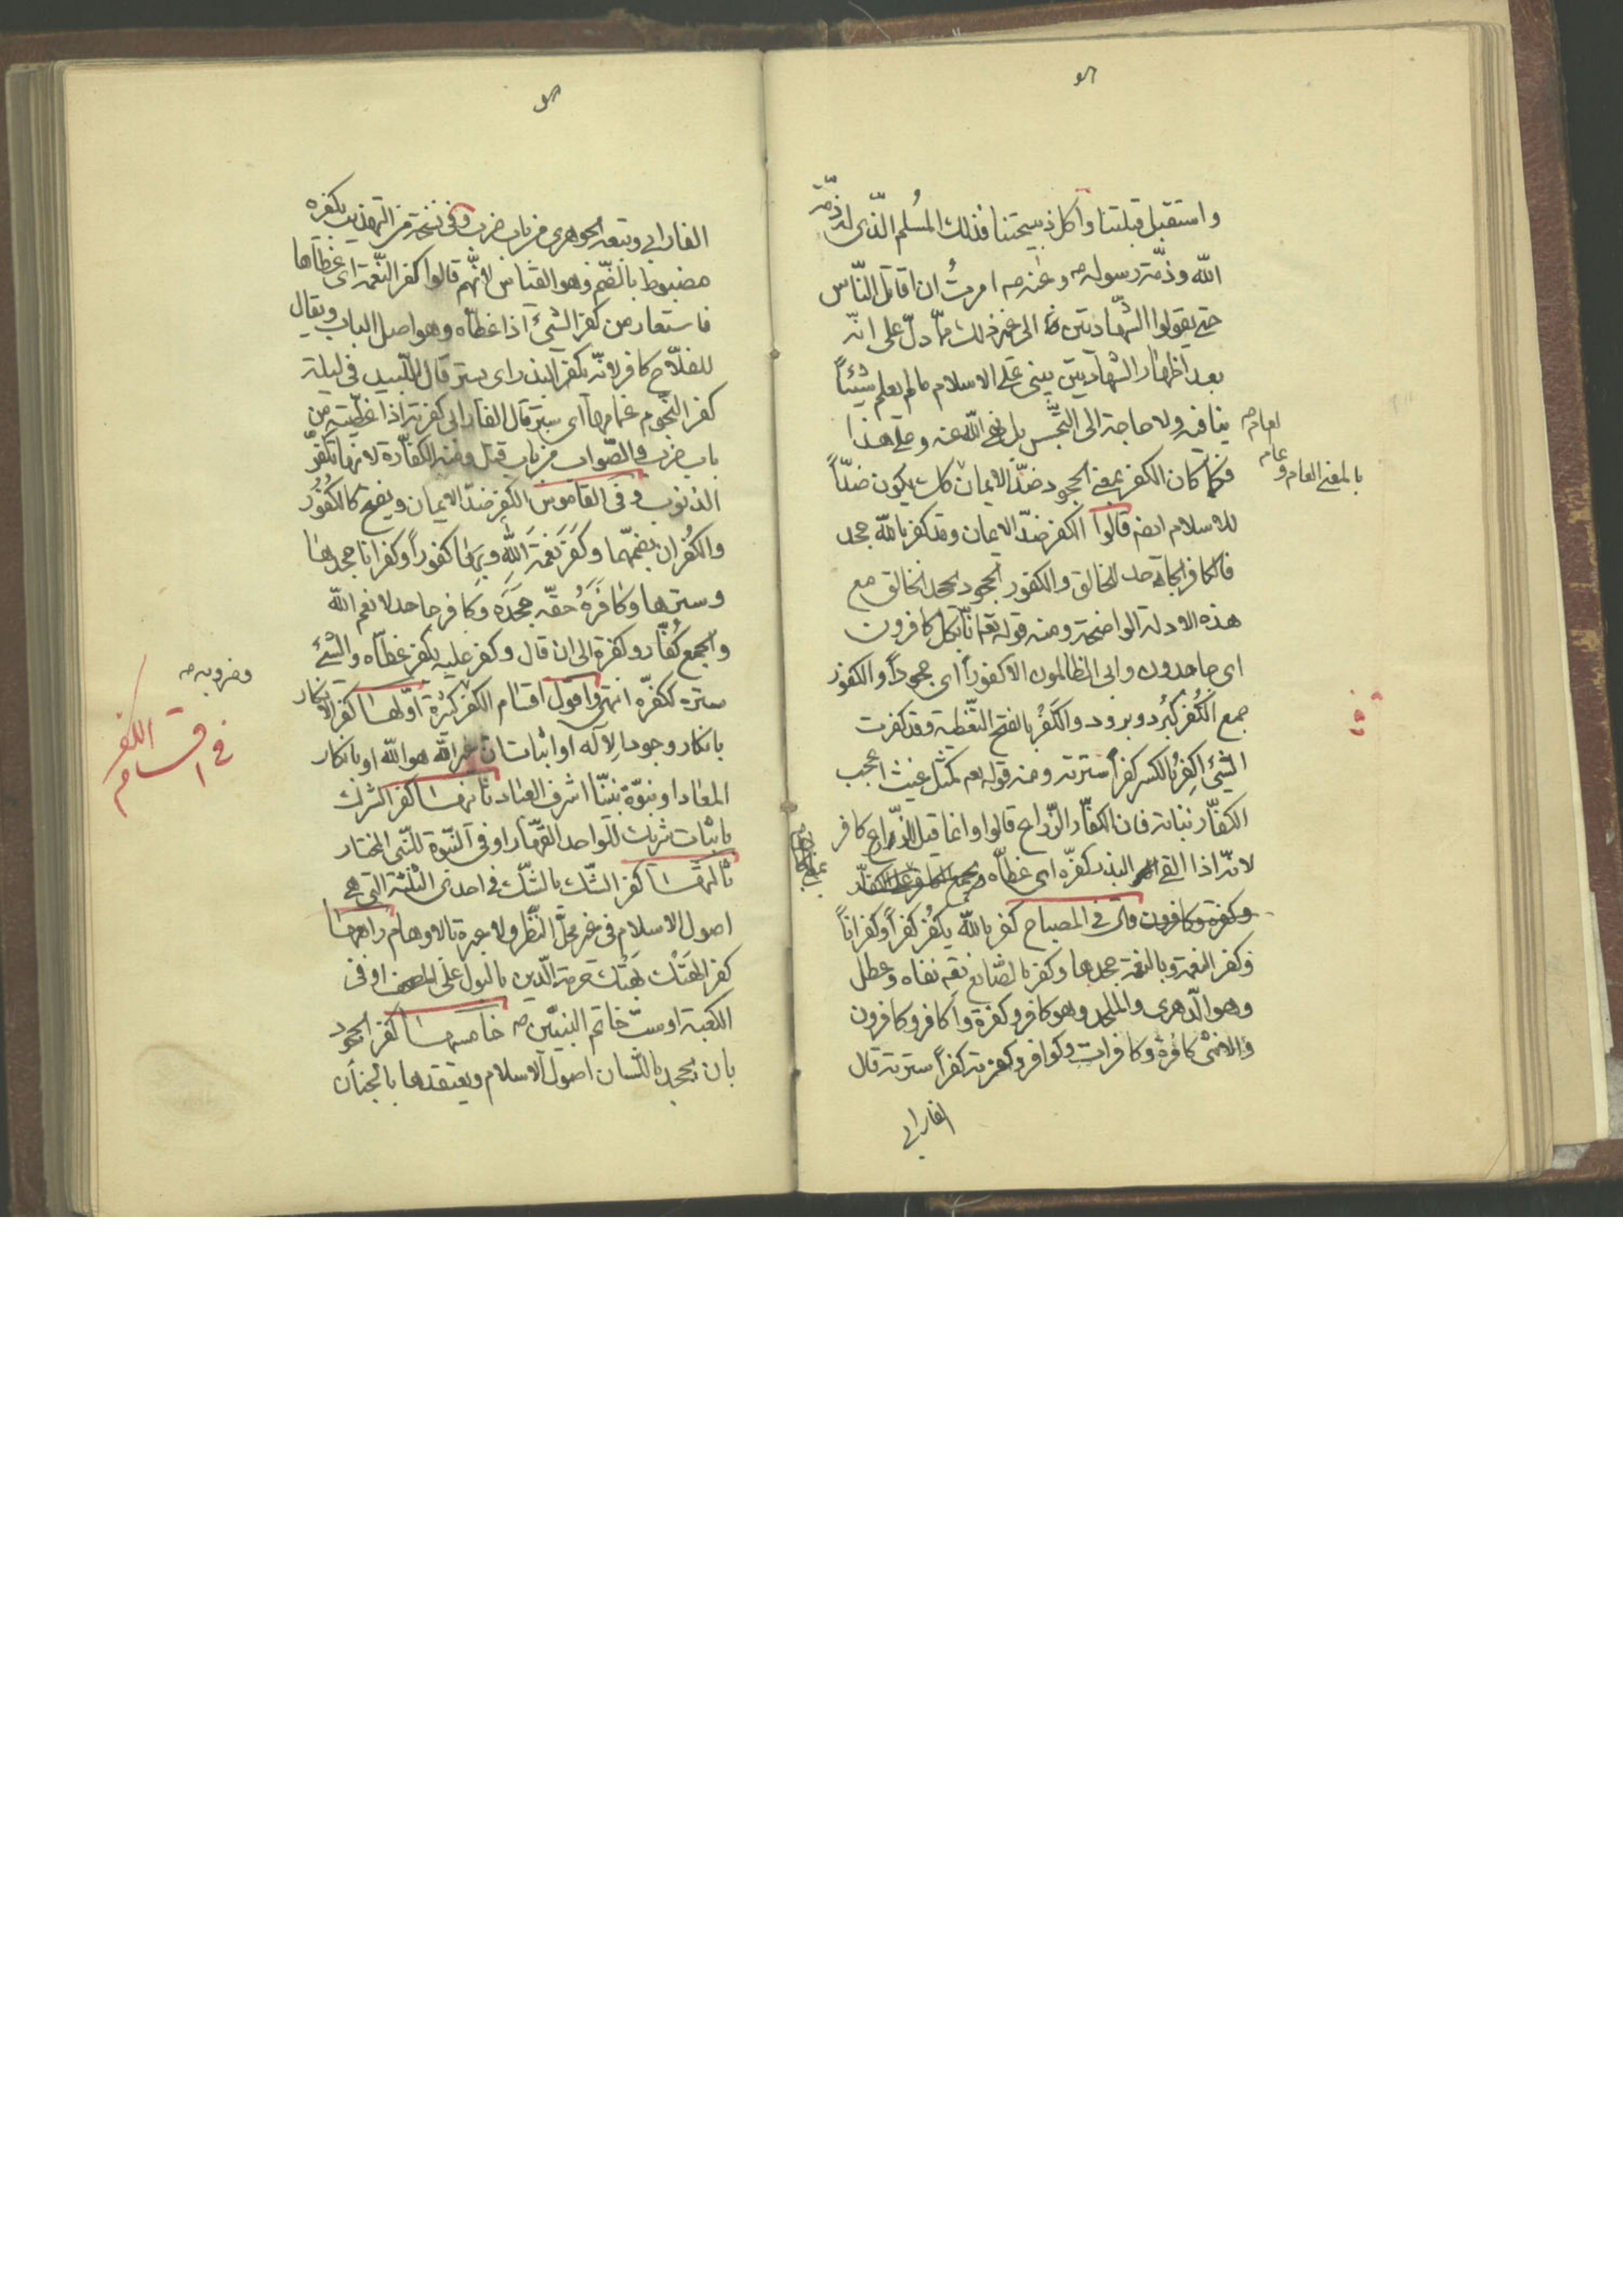 واستقبل قبلتنا واكل ذبيحتنا فذلك المسلم الّذى له ذمّة
الله وذمّة رسوله ص وعنه ص امرتُ ان اقاتل النّاس
حتى يقولوا الشّهادتين الى غير ذلك ممّا دلّ على انّه
بعد اظهار الشهادتين يبنى على الاسلام ما لم يعلم شيئاً
ينافيه ولا حاجة الى التجسّس بل نهى الله عنه وعلى هذا
فكما كان الكفر بمعنى الجحود ضدّ الايمان كك يكون ضدّاً
بالمعنى العام
للاسلام ايضم قالوا الكفر ضدّ الايمان وقد كفر بالله جحد
فالكافر الجاحد للخالق والكفور الجحود لجحد الخالق مع
هذه الادلة الواضحة ومنه قوله تعم انّا بكل كافرون
اى جاحدون وابى الظالمون الا كفوراً اى جحوداً والكفور
جمع الكُفر كبُرد وبرود والكَفر بالفتح التّغطية وقد كفرت
الشئ اكفِرُ بالكسر كفراً سترته ومنه قوله تعم كمثل غيث اعجب
الكفّار نباته فان الكفّار الزّراع قالوا وانما قيل للزّراع كافر
لانّه اذا القى البذر كفّره اى غطّاه
وكفرة وكافرون قال فى المصباح كفر بالله يكفُر كفراً وكفراناً
وكفر النعمة وبالنعمة جحدها وكفر بالصّانع نفاه وعطل
وهو الدّهرى والملحد وهو كافر وكفرة وكافر وكافرون
والانثى كافرة وكافرات وكوافر وكفرته كفراً سترته قال
الفارابى
الفارابى وتبعه الجوهرى من باب ضرب وفى نسخة من التهذيب يكفره
مضبوط بالضّم وهو القياس لانّهم قالوا كفر النّعمة اى غطّاها
فاستعار من كفر الشئ اذا غطّاه وهو اصل الباب ويقال
للفلّاح كافر لانّه يكفر البذر اى يستر قال لبيد فى ليلة
كفر النّجوم غمامها اى ستر قال الفارابى كفرته اذا غطّيته من
باب ضرب والصّواب من باب قتل ومنه الكفّارة لانها تكفّر
الذنوب وفى القاموس الكفر ضدّ الايمان ويفتح كالكُفُور
والكُفران بضمّهما وكَفَرَ نعمَةَ الله وبها كفوراً وكفرانا جحدها
وسترها وكافَرَهُ حقّه جحَدَه وكافر جاحد لانعم الله
والجمع كُفّار وكفرة الى ان قال وكفر عليه يكفر غطّاه والشئ
ستره ككفّره انتهى واقول اقسام الكفر كثيرة اوّلها كفر الانكار
وضروبه ص
فى اقسام الكفر
بانكار وجود الاله او اثبات ان غير الله هو الله او بانكار
المعاد او نبوّة نبيّنا اشرف العباد ثانيها كفر الشرك
باثبات شريك للواحد القهّار او فى النّبوة للنّبى المختار
ثالثها كفر الشّك بالشّك فى احدى الثلثة التى هى
اصول الاسلام فى غير محلّ النّظر ولا عبرة بالاوهام رابعها
كفر الهتك بهتك حرمة الّدين بالبول على المصحف او فى
الكعبة او سبّ خاتم النبيّين ص خامسها كفر الجحود
بان يجحد باللّسان اصول الاسلام ويعتقدها بالجنان